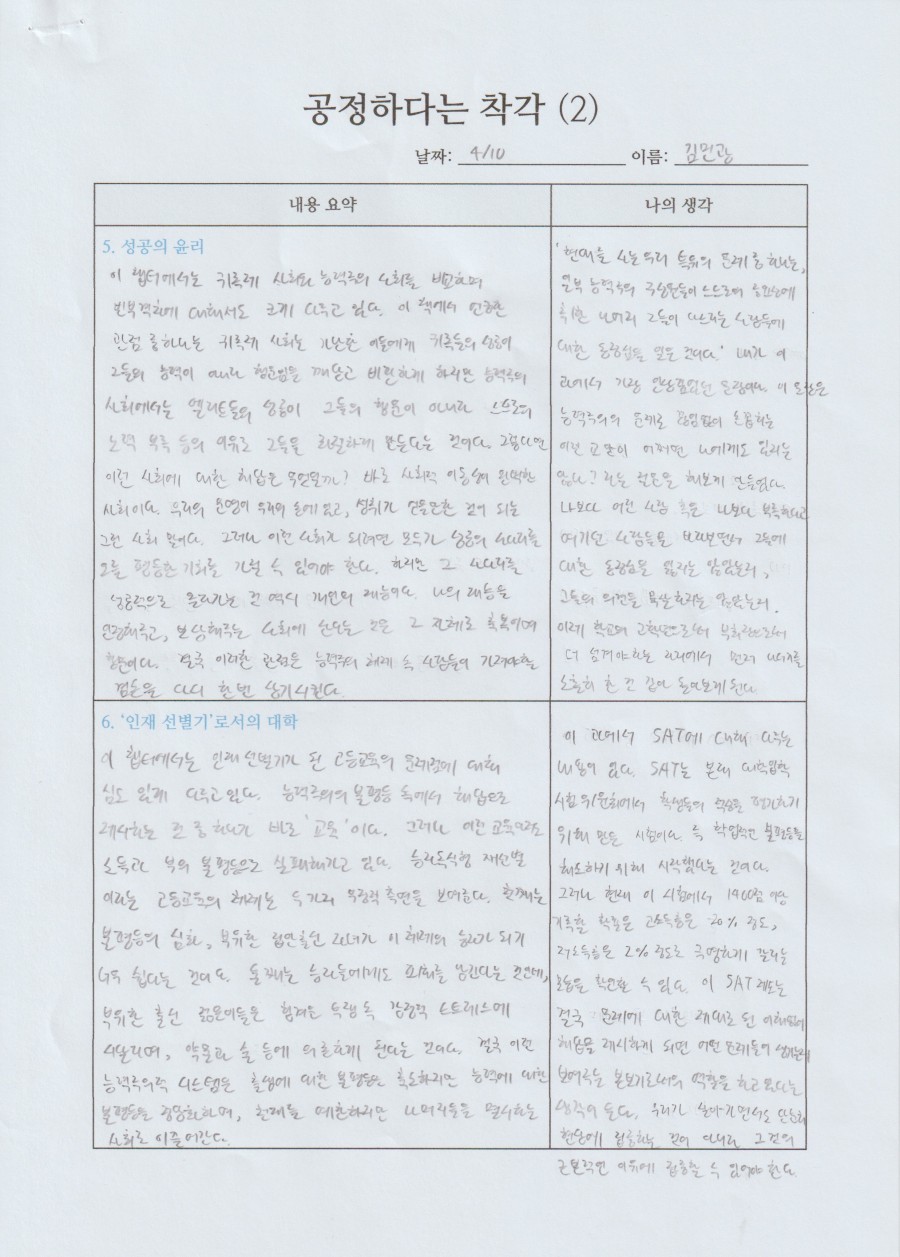 공정하다는 착각 (2)
날짜: 4/10 이름: 김민광
내용 요약
나의 생각
5. 성공의 윤리
이 챕터에서는 귀족제 사회와 능력주의 사회를 비교하며
빈부격차에 대해서도 크게 다루고 있다. 이 책에서 언급한
관점 중 하나는 귀족제 사회는 가난한 이들에게 귀족들의 성공이
그들의 능력이 아니라 행운임을 깨닫고 비판하게 하지만 능력주의
사회에서는 엘리트들의 성공이 그들의 행운이 아니라 스스로의
노력 부족 등의 이유로 그들을 좌절하게 만든다는 것이다. 그렇다면
이런 사회에 대한 해답은 무엇일까? 바로 사회적 이동성이 완벽한
사회이다. 우리의 운명이 우리의 손에 있고, 성취가 되는
그런 사회 말이다. 그러나 이런 사회가 되려면 모두가 성공의 사다리를
오를 평등한 기회를 가질 수 있어야 한다. 하지만 그 사다리를
성공적으로 올라가는 것 역시 개인의 재능이다. 나의 재능을
인정해주고, 보상해주는 사회에 산다는 것은 그 자체로 축복이며
행운이다. 결국 이러한 관점은 능력주의 체제 속 사람들이 가져야할
겸손을 다시 한번 상기시킨다.
'현대를 사는 우리 특유의 문제 중 하나는,
일부 능력주의 구성원들이 스스로의 성공에
취한 나머지 그들이 사람들에
대한 동정심을 잃은 것이다.' 내가 이
과에서 가장 인상깊었던 문장이다. 이 문장은
능력주의의 문제로 끊임없이
이런 교만이 어쩌면 나에게도 있지는
않나? 라는 질문을 해보게 만들었다.
나보다 어린 사람 혹은 나보다 부족하다고
여기던 사람들을 바라보면서 그들에
대한 동정심을 잃지는 않았는지,
그들의 의견을 묵살하지는 않았는지.
이제 학교의 고학년으로서 부회장으로서
더 섬겨야하는 자리에서 먼저 나 자신을
소홀히 한 것 같아 돌아보게 된다.
6. '인재 선별기'로서의 대학
이 챕터에서는 인재 선별기가 된 고등교육의 문제점에 대해
심도 있게 다루고 있다. 능력주의의 불평등 속에서 해답으로
제시하는 것 중 하나가 바로 '교육'이다. 그러나 이런 교육마저도
소득과 부의 불평등으로 실패해가고 있다. 승자독식형 재선별
이라는 고등교육의 체제는 두가지 부정적 측면을 보여준다. 첫째는
불평등의 심화, 부유한 집안출신 자녀가 이 체제의 승자가 되기
더욱 쉽다는 것이다. 둘째는 승리자들에게도 피해를 남긴다는 것인데,
부유한 출신 젊은이들은 힘겨운 투쟁 속 감정적 스트레스에
시달리며, 약물과 술 등에 의존하게 된다는 것이다. 결국 이런
능력주의적 시스템은 출생에 대한 불평등은 축소하지만 능력에 대한
불평등을 정당화하며, 천재들을 예찬하지만 나머지들을 멸시하는
사회로 이끌어간다.
이 과에서 SAT에 대해 다루는
내용이 있다. SAT는 본래 대학입학
시험위원회에서 학생들의 적성을 평가하기
위해 만든 시험이다. 즉 학업적인 불평등을
해소하기 위해 시작했다는 것이다.
그러나 현재 이 시험에서 1400점 이상
기록할 확률은 고소득층은 20% 정도,
저소득층은 2% 정도로 극명하게 갈리는
것을 확인할 수 있다. 이 SAT 제도는
결국 문제에 대한 제대로 된 이해없이
해답을 제시하게 되면 어떤 문제들이 생기는지
보여주는 본보기로서의 역할을 하고 있다는
생각이 든다. 우리가 살아가면서도 단순히
현상에 집중하는 것이 아니라 그것의
근본적인 이유에 집중할 수 있어야 한다.